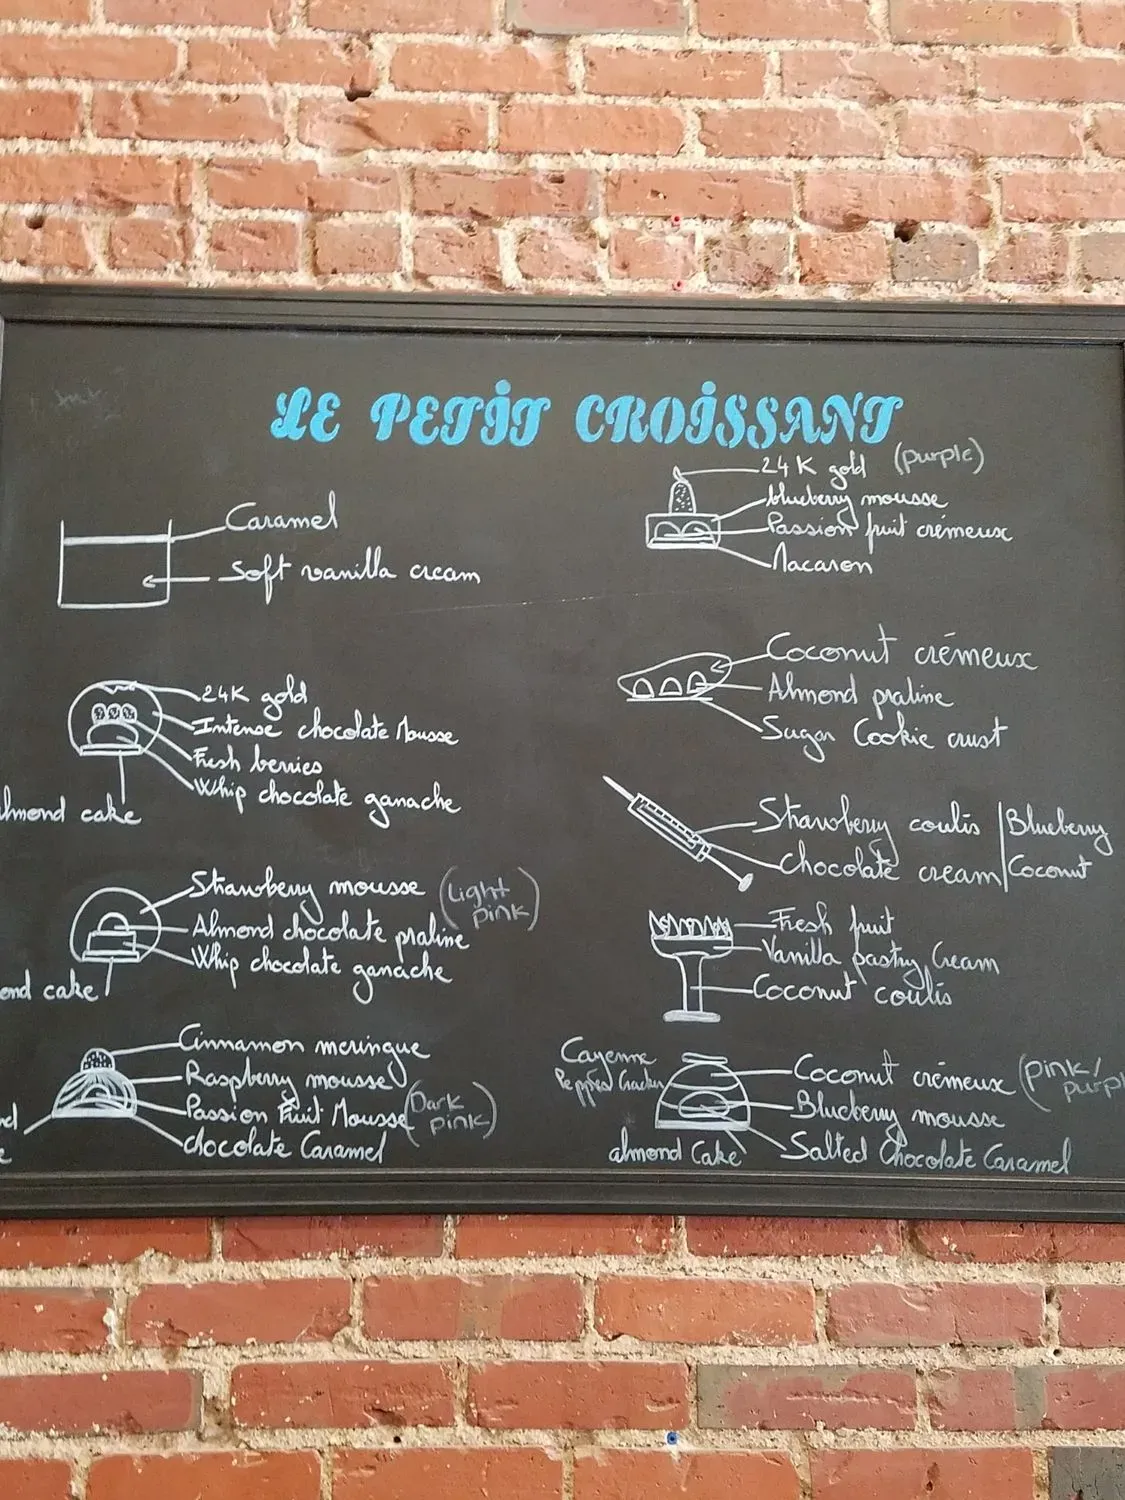 LE PETIT CROISSANT
Caramel
Soft vanilla cream
24K gold
Intense chocolate Mousse
Fresh berries
Whip chocolate ganache
lmond cake
Strawberry mousse (Light pink)
Almond chocolate praline
Whip chocolate ganache
ond cake
Cinnamon meringue
Raspberry mousse
Passion Fruit Mousse (Dark pink)
chocolate Caramel
24K gold (purple)
blueberry mousse
Passion fruit crémeux
Macaron
Coconut crémeux
Almond praline
Sugar Cookie crust
Strawberry coulis | Blueberry
Chocolate cream | Coconut
Fresh fruit
Vanilla pastry Cream
Coconut coulis
Cayenne
Coconut crémeux (pink/purpl
Blueberry mousse
Salted Chocolate Caramel
almond Cake